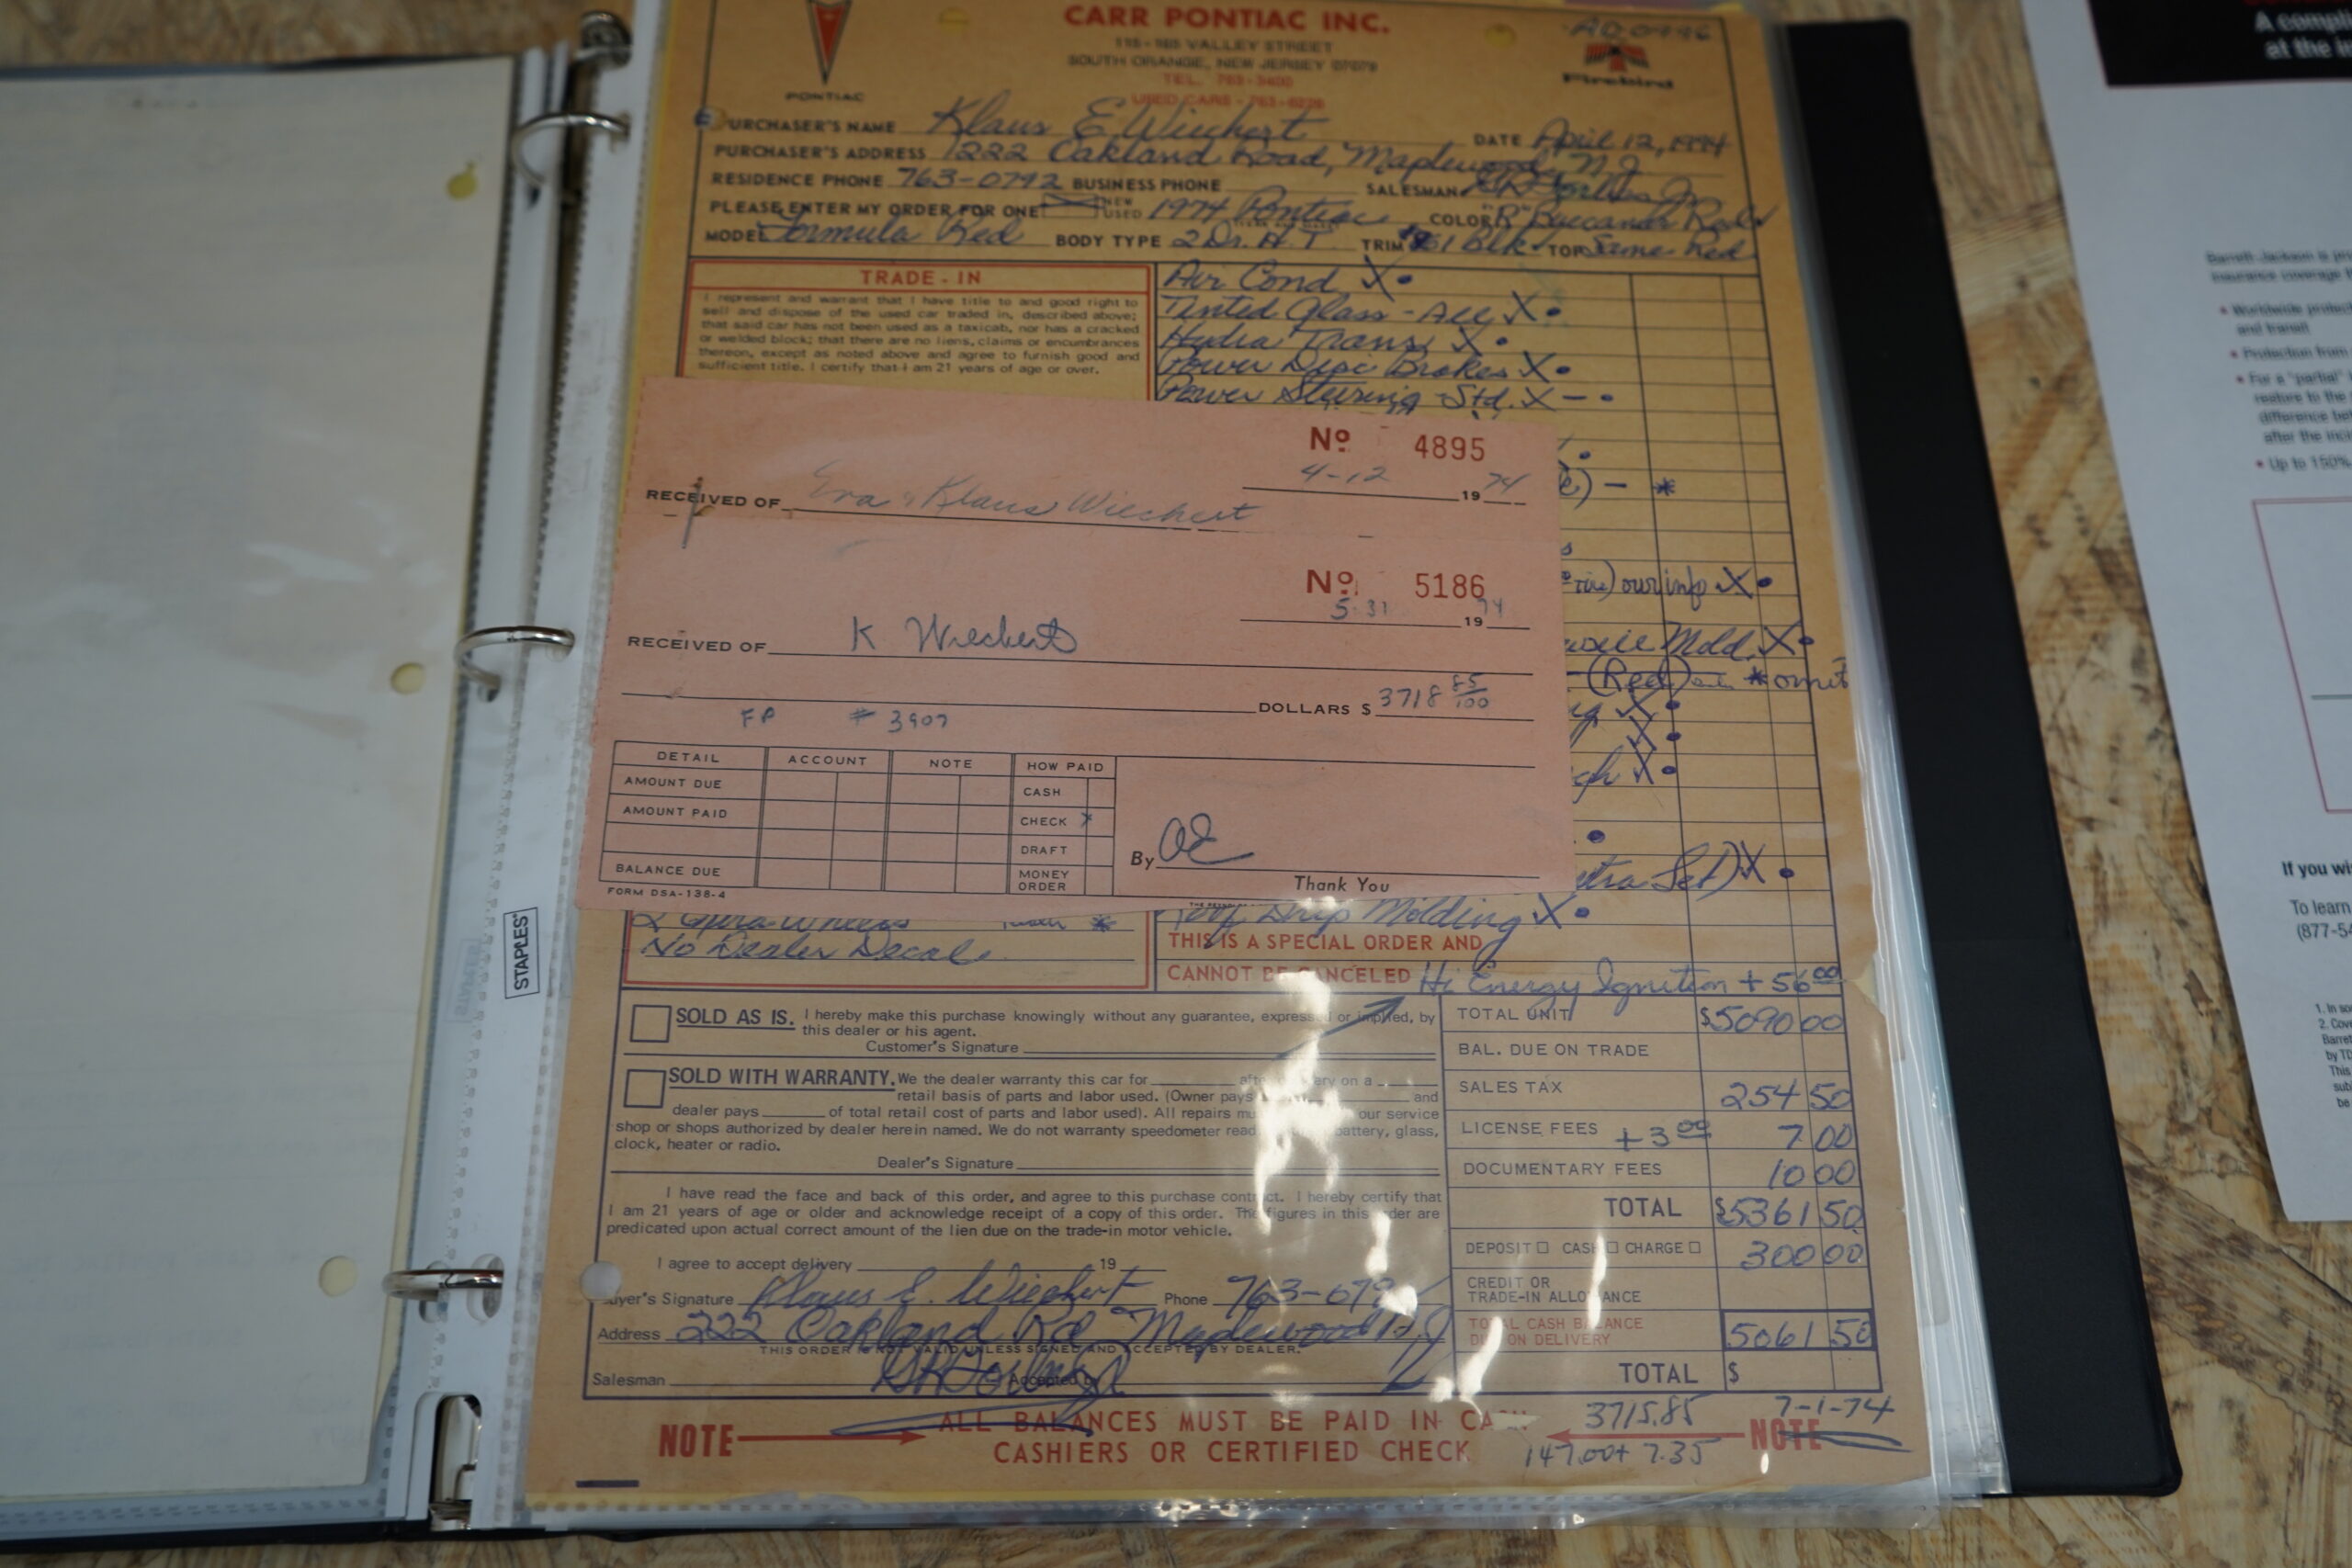 CARR PONTIAC INC.
115-165 VALLEY STREET
SOUTH ORANGE, NEW JERSEY 07079
TEL. 763-3400
USED CARS - 763-6226
PONTIAC
Firebird
PURCHASER'S NAME Klaus E Wiechert DATE April 12, 1974
PURCHASER'S ADDRESS 222 Oakland Road, Maplewood, N J
RESIDENCE PHONE 763-0792 BUSINESS PHONE SALESMAN
PLEASE ENTER MY ORDER FOR ONE NEW USED 1974 Pontiac COLOR "R" Buccaneer Red
MODEL Formula Red BODY TYPE 2 Dr. H.T. TRIM 361 Blk TOP Same Red
TRADE-IN
I represent and warrant that I have title to and good right to
sell and dispose of the used car traded in, described above;
that said car has not been used as a taxicab, nor has a cracked
or welded block; that there are no liens, claims or encumbrances
thereon, except as noted above and agree to furnish good and
sufficient title. I certify that I am 21 years of age or over.
Air Cond X •
Tinted Glass - All X •
Hydra Trans X •
Power Disc Brakes X •
Power Steering - Std. X - •
No 4895
4-12 1974
RECEIVED OF Eva & Klaus Wiechert
No 5186
5-31 1974
RECEIVED OF K Wiechert
DOLLARS $ 3718 85/100
FP # 3907
DETAIL ACCOUNT NOTE HOW PAID
AMOUNT DUE CASH
AMOUNT PAID CHECK X
DRAFT
BALANCE DUE MONEY ORDER
By OE
FORM DSA-138-4
Thank You
our info X •
Mold. X •
(Red) * omit
Set) X •
No Dealer Decal
Roof Drip Molding X •
THIS IS A SPECIAL ORDER AND
CANNOT BE CANCELED Hi Energy Ignition + 56 00
SOLD AS IS. I hereby make this purchase knowingly without any guarantee, expressed or implied, by
this dealer or his agent.
Customer's Signature
SOLD WITH WARRANTY. We the dealer warranty this car for after delivery on a
retail basis of parts and labor used. (Owner pays and
dealer pays of total retail cost of parts and labor used). All repairs our service
shop or shops authorized by dealer herein named. We do not warranty speedometer battery, glass,
clock, heater or radio.
Dealer's Signature
I have read the face and back of this order, and agree to this purchase contract. I hereby certify that
I am 21 years of age or older and acknowledge receipt of a copy of this order. The figures in this order are
predicated upon actual correct amount of the lien due on the trade-in motor vehicle.
I agree to accept delivery 19
Buyer's Signature Klaus E. Wiechert Phone 763-079
Address 222 Oakland Rd Maplewood N.J
THIS ORDER IS NOT VALID UNLESS SIGNED AND ACCEPTED BY DEALER.
Salesman Accepted by
TOTAL UNIT $5090 00
BAL. DUE ON TRADE
SALES TAX 254 50
LICENSE FEES +3 00 7 00
DOCUMENTARY FEES 10 00
TOTAL $5361 50
DEPOSIT CASH CHARGE 300 00
CREDIT OR
TRADE-IN ALLOWANCE
TOTAL CASH BALANCE
DUE ON DELIVERY 5061 50
TOTAL $
NOTE ALL BALANCES MUST BE PAID IN CASH 3715.85 NOTE 7-1-74
CASHIERS OR CERTIFIED CHECK 147.00 + 7.35
STAPLES
A comp
at the
Barrett-Jackson is
insurance coverage
• Worldwide
and transit
• Protection from
• For a "partial"
restore to the
difference
after the
• Up to 150%
If you wi
To learn
(877-54
1. In so
2. Cov
Barret
by TD
This
sub
be